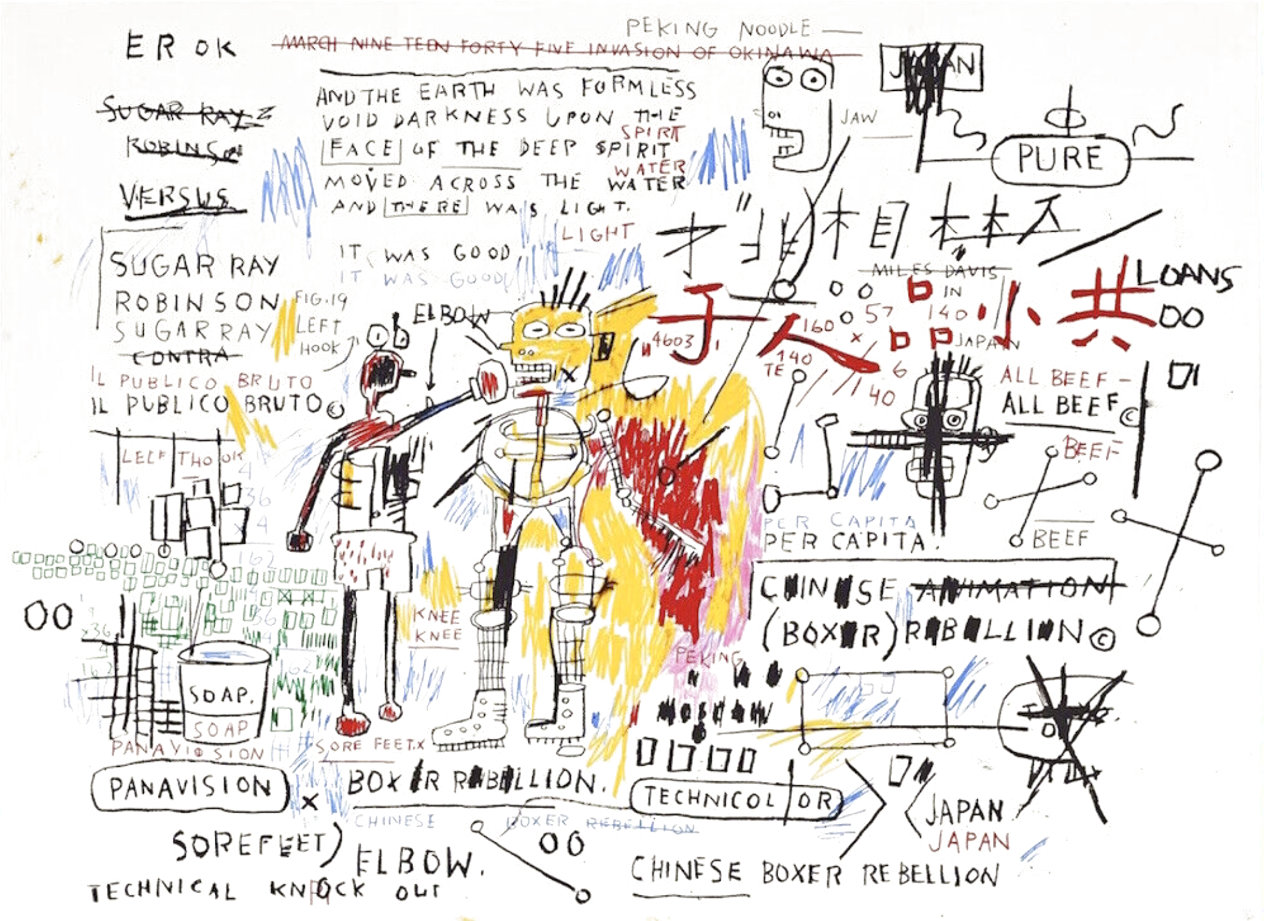 PEKING NOODLE
EROK
MARCH NINE TEEN FORTY FIVE INVASION OF OKINAWA
JAPAN
SUGAR RAY
ROBINSON
VERSUS
AND THE EARTH WAS FORMLESS
VOID DARKNESS UPON THE
SPIRIT
FACE OF THE DEEP SPIRIT
WATER
MOVED ACROSS THE WATER
AND THERE WAS LIGHT.
LIGHT
IT WAS GOOD
IT WAS GOOD
JAW
PURE
SUGAR RAY
ROBINSON
SUGAR RAY
CONTRA
IL PUBLICO BRUTO
IL PUBLICO BRUTO©
FIG.19
LEFT
HOOK
ELBOW
X
MILES DAVIS
IN
JAPAN
子人品小共
LOANS
57
140
160
X
4603
140
TE
6
40
ALL BEEF-
ALL BEEF©
BEEF
BEEF
PER CAPITA
PER CAPITA.
CHINESE ANIMATION
(BOXER) REBELLION©
36
X4
162
36
4
162
x36
4
162
KNEE
KNEE
PEKING
MOSCOW
SOAP.
SOAP
PANAVISION
SORE FEET.X
PANAVISION
X
BOXER REBELLION.
TECHNICOLOR
CHINESE BOXER REBELLION
JAPAN
JAPAN
SOREFEET)
ELBOW.
TECHNICAL KNOCK OUT
CHINESE BOXER REBELLION